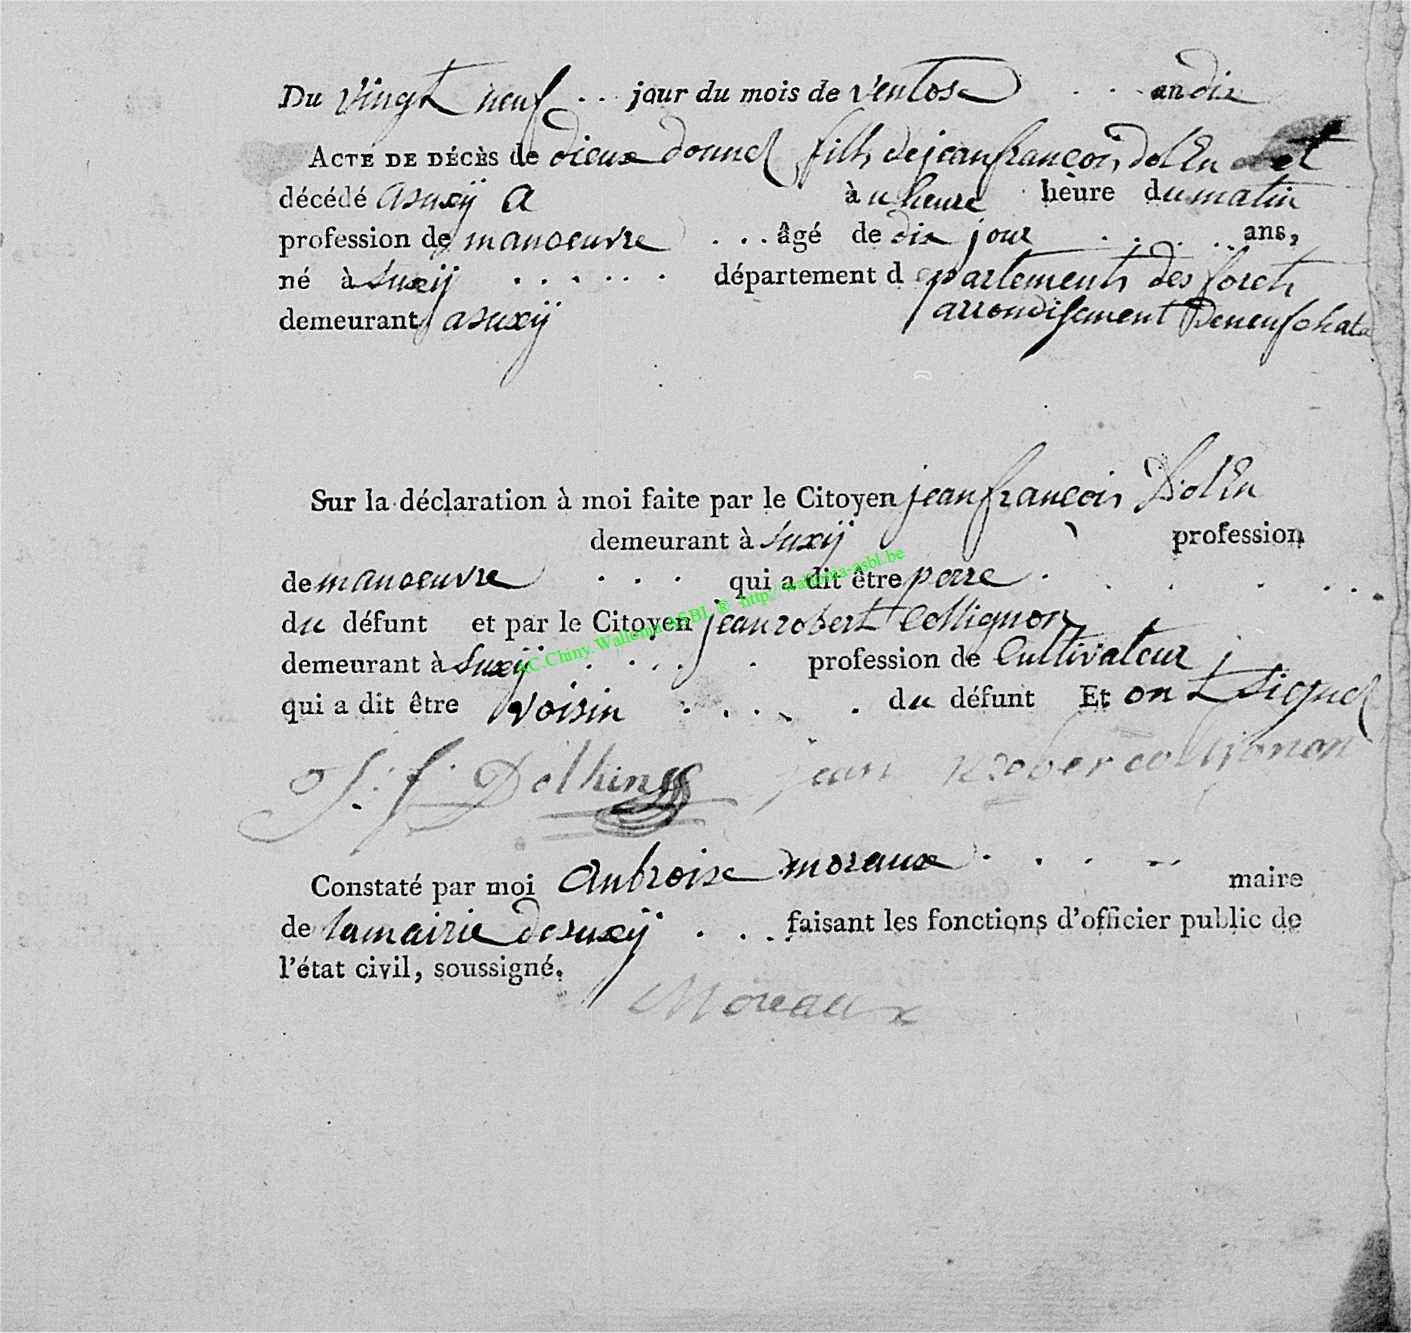 Du vingt neuf .. jour du mois de ventose ... an dix
ACTE DE DÉCÈS de dieux donnel fills de jean francois dolEn et
décédé a suxÿ a à u heure hèure du matin
profession de manoeuvre ... âgé de dix jour ..... ans,
né à suxÿ ...... département d epartements des forets
demeurant a suxÿ arrondisement de neufchata
Sur la déclaration à moi faite par le Citoyen jean francois DolEn
demeurant à suxÿ profession
de manoeuvre ... qui a dit être perre .
du défunt et par le Citoyen jean robert Collignon
demeurant à Suxÿ .... profession de Cultivateur
qui a dit être voisin .... du défunt Et on t signel
J: f: Delhing jean Rober collignon
Constaté par moi Anbroise moraux .... maire
de la mairie de suxÿ ... faisant les fonctions d'officier public de
l'état civil, soussigné.
Moraux
AC Chiny Wallonia ASBL ® http://wallonia-asbl.be